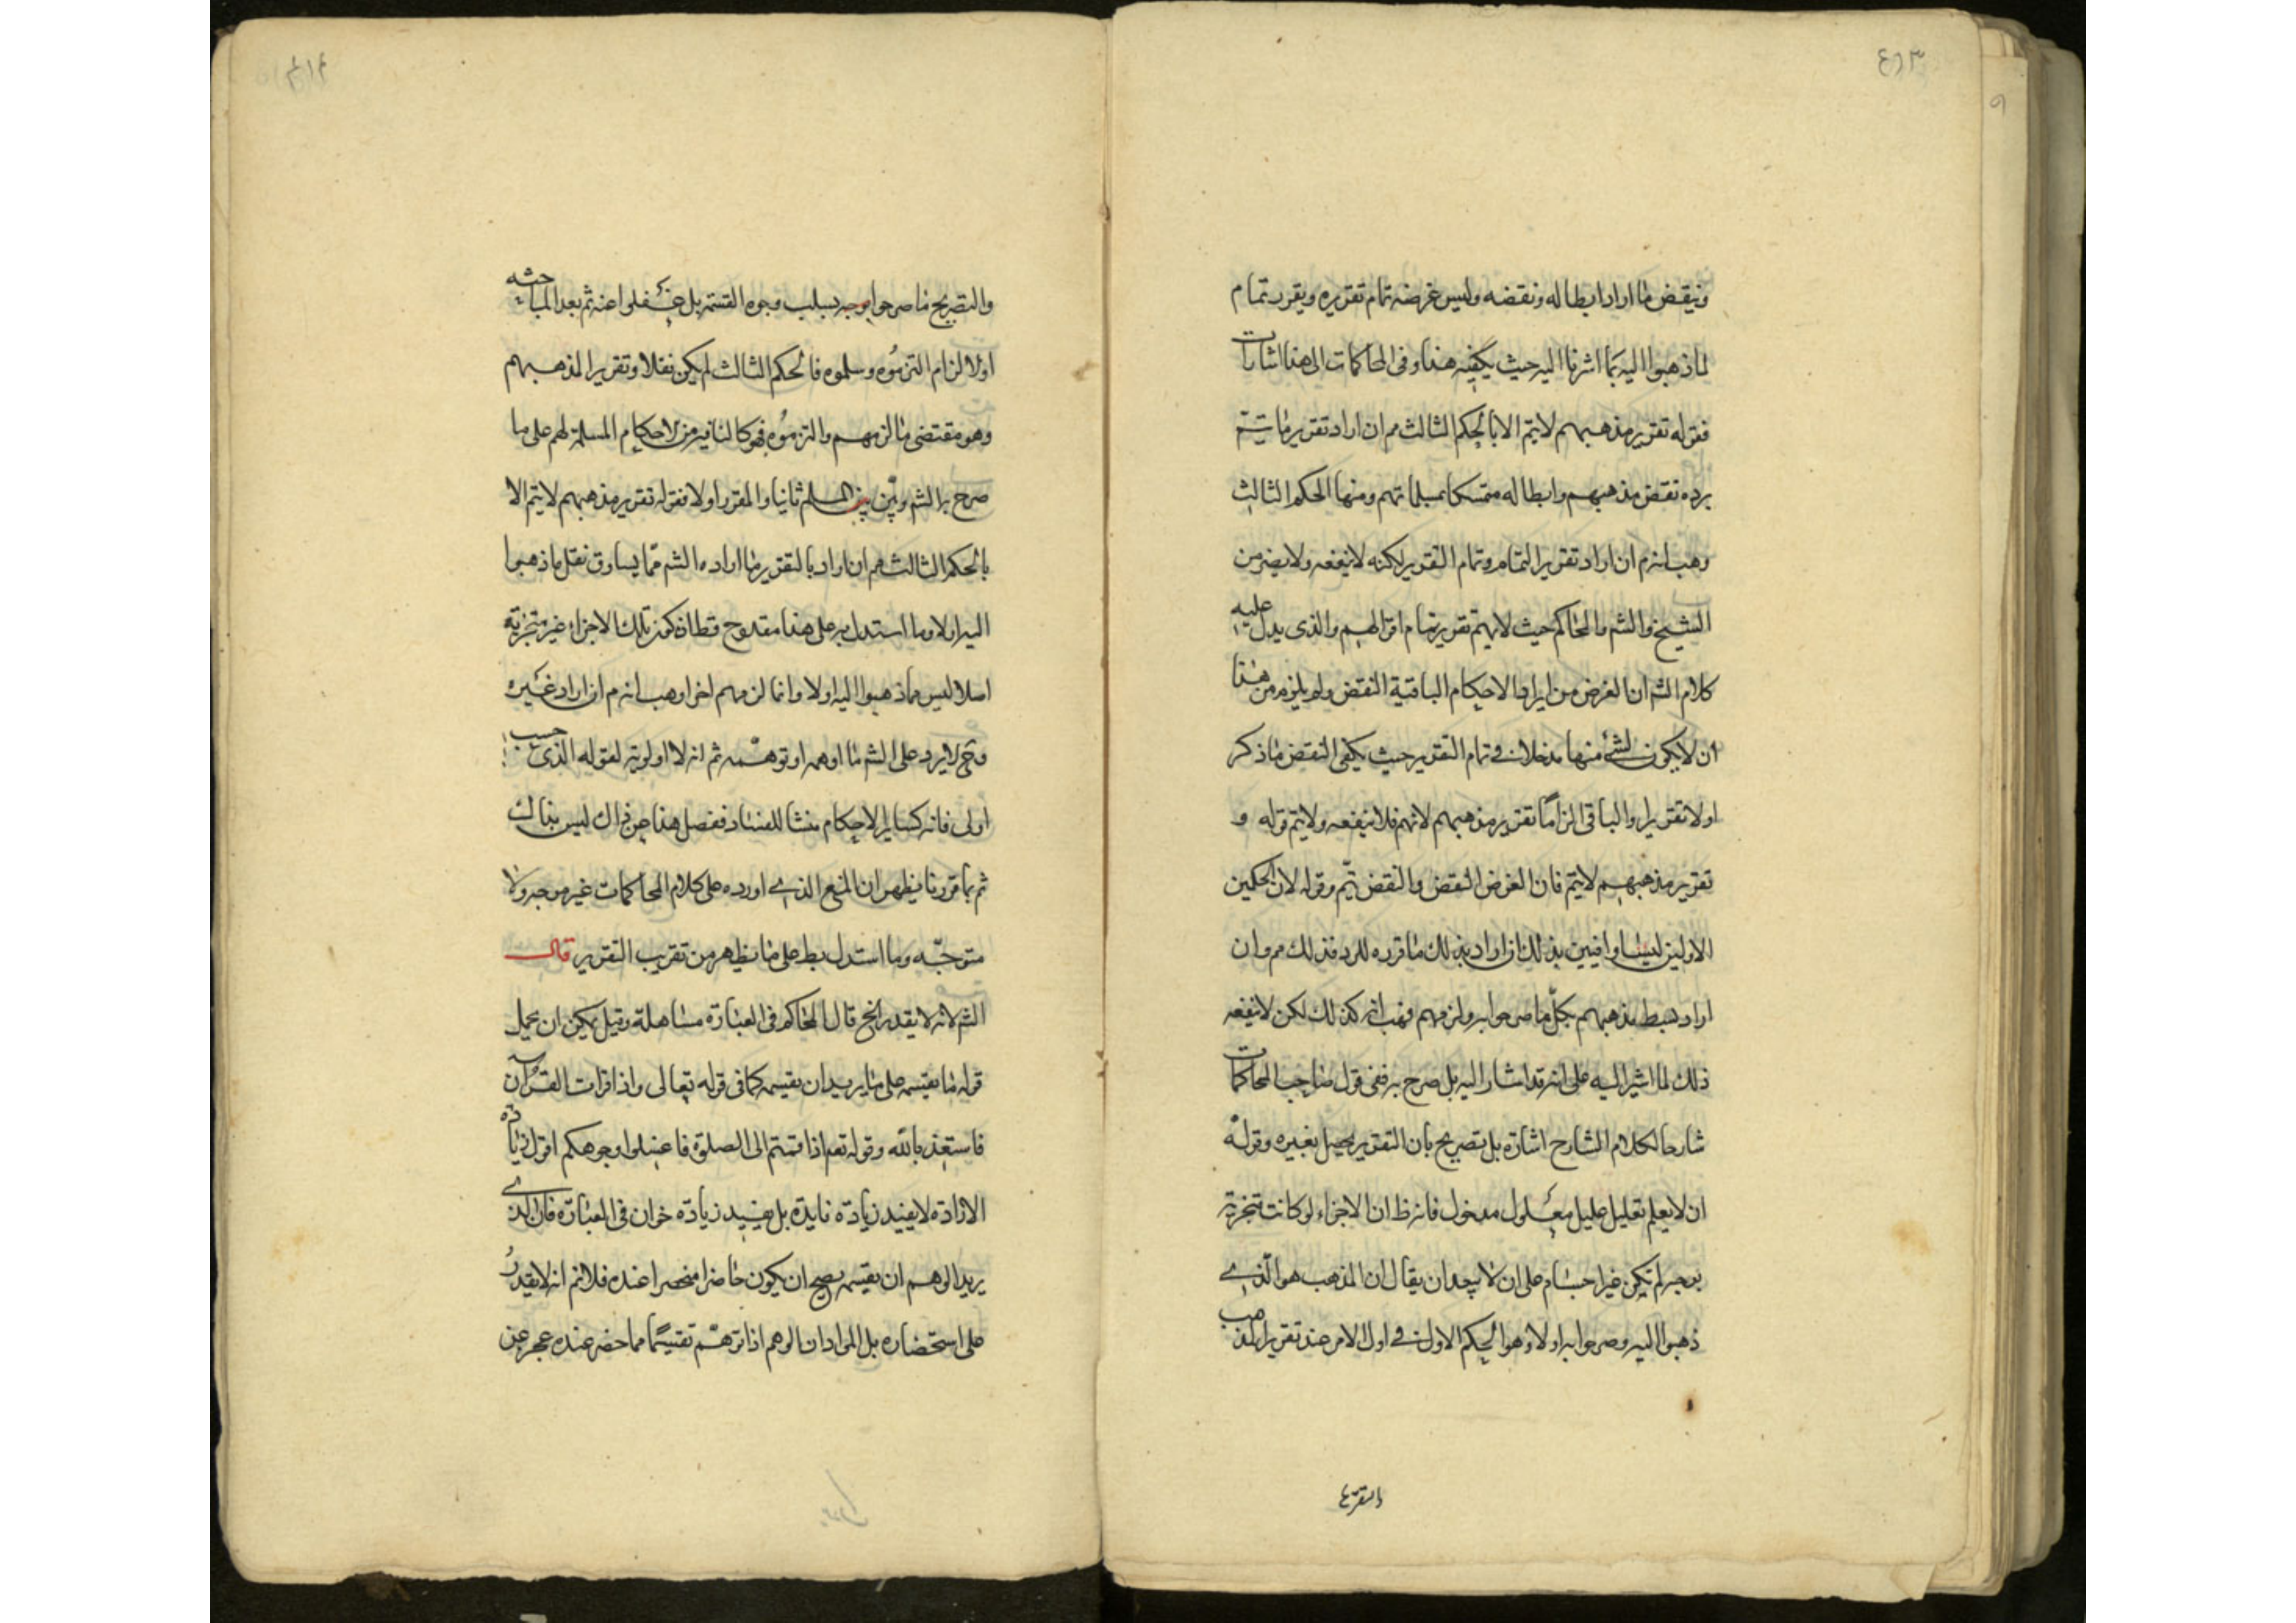 ٤٦٣
٩
وينقض ما اراد ابطاله ونقضه وليس غرضه تمام تقريره ويقرر تمام
لما ذهبوا اليه بما اشرنا اليه حيث يكفيه هذا وفى المحاكمات الى هذا اشارات
فقوله تقرير مذهبهم لايتم الا بالحكم الثالث مم ان اراد تقرير ما يتم
برده نقض مذهبهم وابطاله متمسكا بمسلماتهم ومنها الحكم الثالث
وهب انه م ان اراد تقرير التمام وتمام التقرير لكنه لاينفعه ولايضر من
الشيخ والشم والمحاكم حيث لايهم تقرير تمام اقوالهم والذى يدل عليه
كلام الشم ان الغرض من ايراد الاحكام الباقية النقض ولم يلزم من هذا
ان لايكون لشئ منها مدخلا فى تمام التقرير حيث يكفى النقض ما ذكر
اولا تقريرا والباقى الزاما تقرير مذهبهم لاتهم فلا ينفعه ولايتم قوله و
تقرير مذهبهم لايتم فان الغرض النقض والنقض يتم وقوله لان الحكمين
الاولين ليسا وافيين بذلك ان اراد بذلك ما قرره للرد فذلك مم وان
اراد ضبط مذهبهم بكل ما صرحوا به ولزمهم فهب انه كذلك لكن لاينفعه
ذلك لما اشير اليه على انه قد اشار اليه بل صرح به ففى قول صاحب المحاكمات
شارحا لكلام الشارح اشارة بل تصريح بان التقرير يحصل بغيره وقوله
ان لايعلم تعليل عليل معلول مدخول فانه ظ ان الاجزاء لو كانت متجزية
بوجه لم يكن غير اجسام على ان لا يبعد ان يقال ان المذهب هو الذى
ذهبوا اليه وصرحوا به اولا وهو الحكم الاول فى اول الامر عند تقرير المذهب
والتصريح ما صرحوا بوجه بسلب وجوه القسمة بل غفلوا عنه ثم بعد المباحثه
اولا لزام التزموه وسلموه فالحكم الثالث لم يكن نقلا وتقريرا لمذهبهم
وهو مقتضى ما الزمهم والتزموه فهو كالثانى من الاحكام المسلمة لهم على ما
صرح به الشم وبين بين المسلم ثانيا والمقرر اولا فقوله تقرير مذهبهم لايتم الا
بالحكم الثالث مم ان اراد بالتقرير ما اراده الشم مما يساوق نقل ما ذهبوا
اليه اولا وما استدل به على هذا مقدوح قطا اذ كون تلك الاجزاء غير متجزية
اصلا ليس مما ذهبوا اليه اولا وانما لزمهم اخرا وهب انه م ان اراد غيره
وح لايرد على الشم ما اوهمه او توهمه ثم انه لا اولوية لقوله الذى حسب
اولى فانه كساير الاحكام منشا للفساد ففصل هذا عن ذاك ليس بذاك
ثم بما قررنا يظهر ان المنع الذى اورده على كلام المحاكمات غير موجه ولا
متوجه وما استدل به على ما يظهر من تقريب التقرير قال
الشم لانه لايقدر الخ قال المحاكم فى العبارة مساهلة وقيل يمكن ان يحمل
قوله ما يقسمه على ما يريد ان يقسمه كما فى قوله تعالى واذا قرات القرآن
فاستعذ بالله وقوله تعم اذا قمتم الى الصلوة فاغسلوا وجوهكم اقول زيادة
الارادة لايفيد زيادة فايدة بل يفيد زيادة خزان فى العبارة فان الذى
يريد الوهم ان يقسمه يصح ان يكون حاضرا منحصرا عنده فلانم انه لايقدر
على استحضاره بل المراد ان الوهم اذا توهم تقسيما مما حضر عنده عجز عن